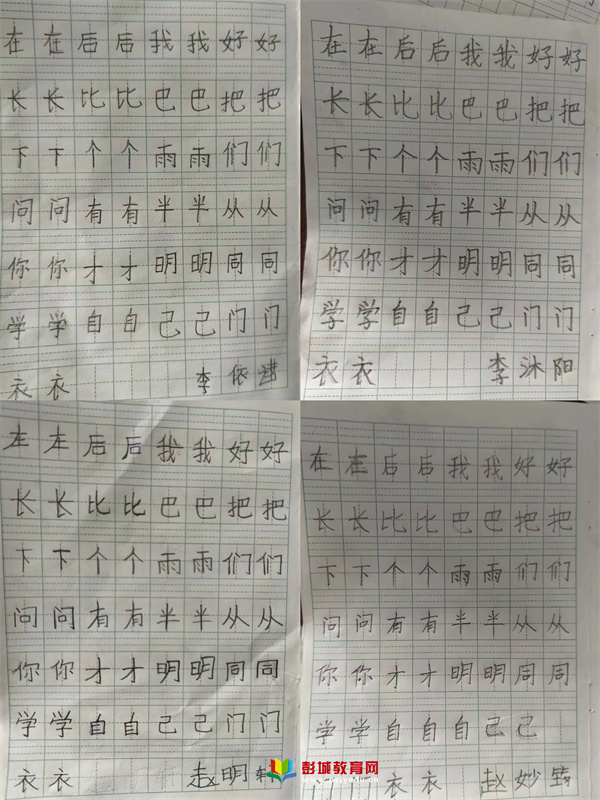 在在后后我我好好
长长比比巴巴把把
下下个个雨雨们们
问问有有半半从从
你你才才明明同同
学学自自己己门门
衣衣 李依
在在后后我我好好
长长比比巴巴把把
下下个个雨雨们们
问问有有半半从从
你你才才明明同同
学学自自己己门门
衣衣 李沐阳
左左后后我我好好
长长比比巴巴把把
下下个个雨雨们们
问问有有半半从从
你你才才明明同同
学学自自己己门门
衣衣 赵明轩
在在后后我我好好
长长比比巴巴把把
下下个个雨雨们们
问问有有半半从从
你你才才明明周同
学学自自自己己
门门衣衣 赵妙
彭城教育网